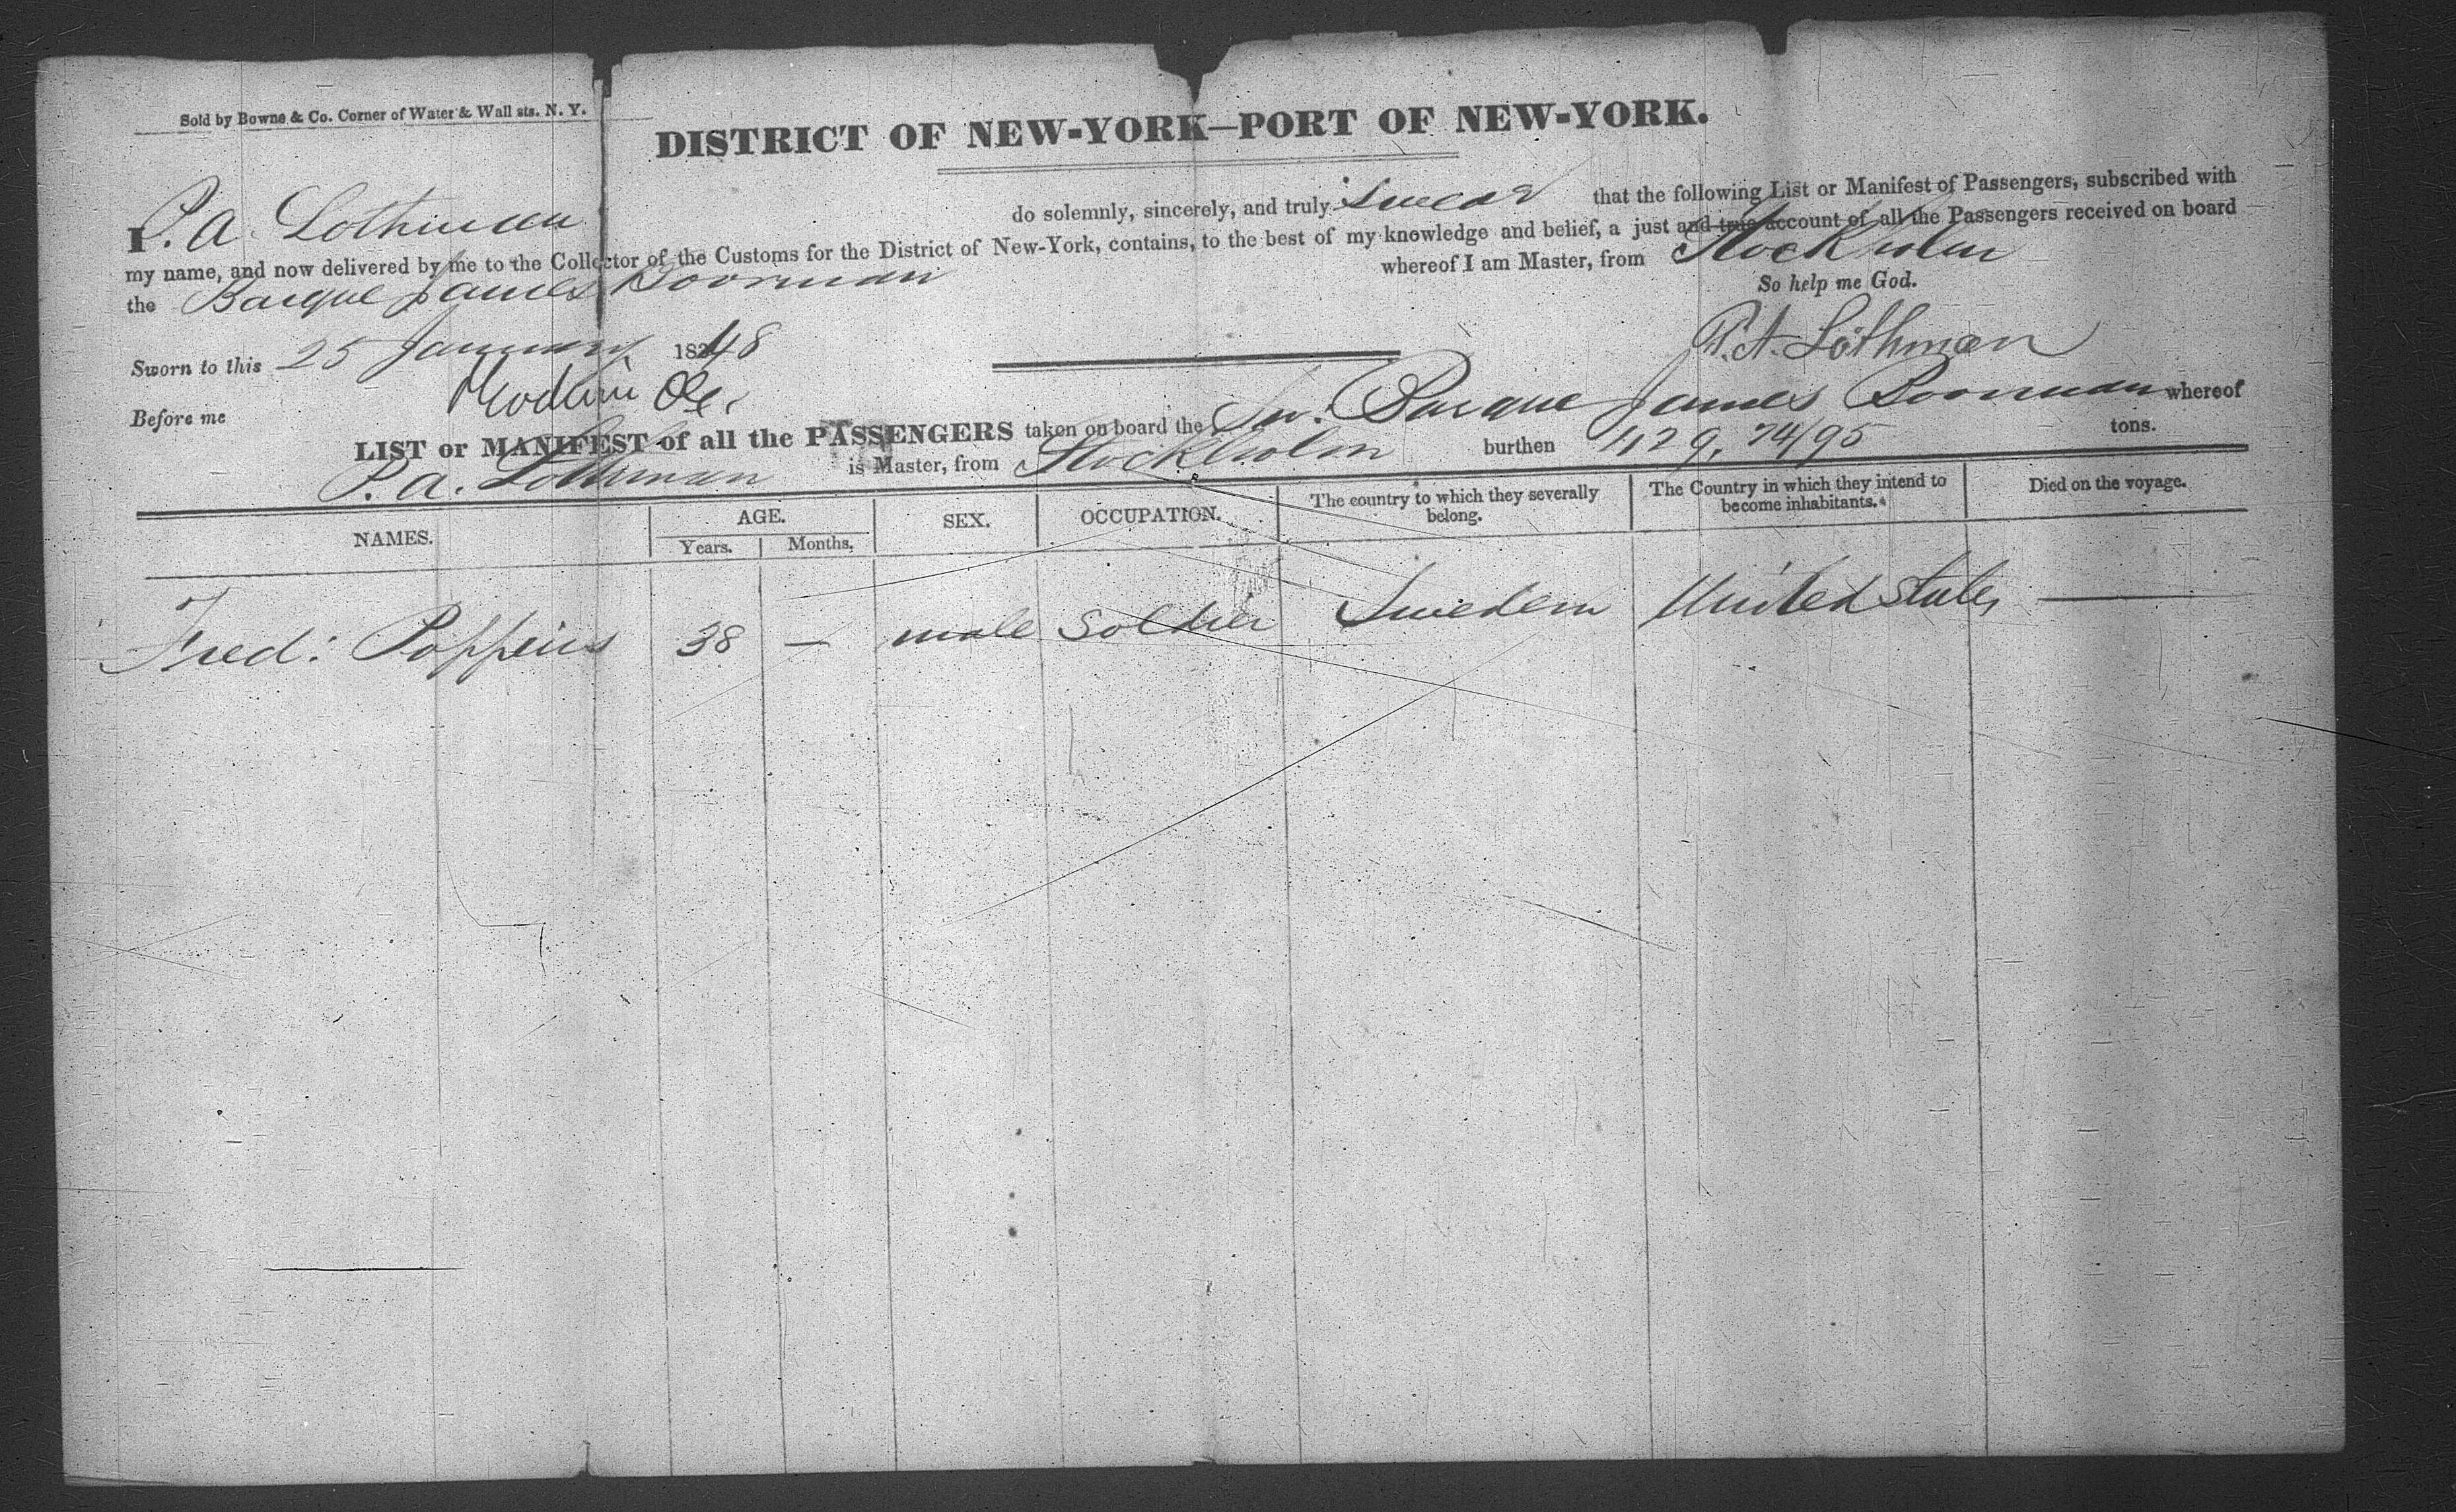 Sold by Bowne & Co. Corner of Water & Wall sts. N. Y.
DISTRICT OF NEW-YORK—PORT OF NEW-YORK.
I P. A. Lothman do solemnly, sincerely, and truly swear that the following List or Manifest of Passengers, subscribed with
my name, and now delivered by me to the Collector of the Customs for the District of New-York, contains, to the best of my knowledge and belief, a just and true account of all the Passengers received on board
the Barque James Boorman whereof I am Master, from Stockholm
So help me God.
Sworn to this 25 January 1848 P. A. Löthman
Before me
LIST or MANIFEST of all the PASSENGERS taken on board the Sw. Barque James Boorman whereof
P. A. Lothman is Master, from Stockholm burthen 429, 74/95 tons.
NAMES. AGE. SEX. OCCUPATION. The country to which they severally belong. The Country in which they intend to become inhabitants. Died on the voyage.
Years. Months.
Fred: Poppius 38 — male Soldier Sweden United States —